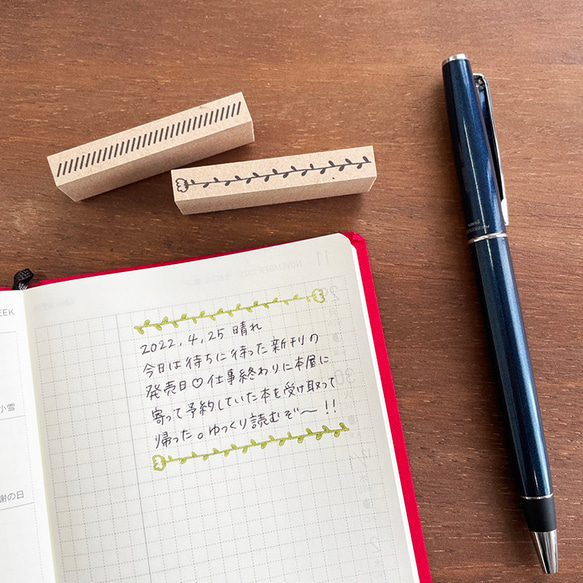 2022.4.25 晴れ
今日は待ちに待った新刊の
発売日♡仕事終わりに本屋に
寄って予約していた本を受け取って
帰った。ゆっくり読むぞ〜!!
EEK
小雪
謝の日
11